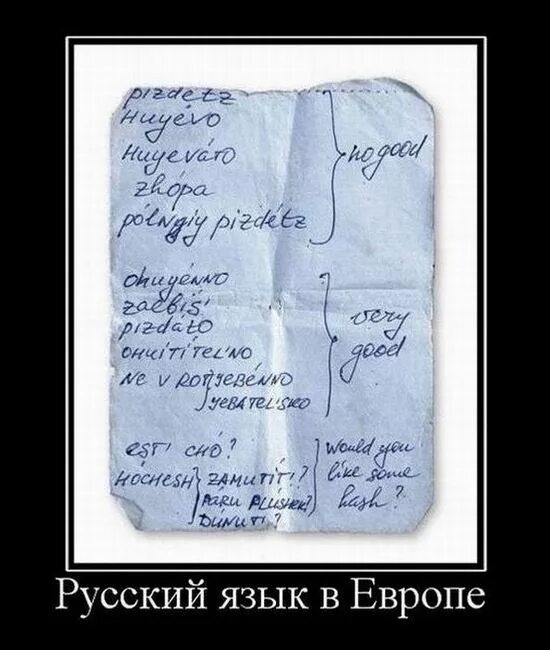 pizdetz
Huyévo
Huyeváto
zhópa
pólngiy pizdétz
no good
ohuyénno
zaebis'
pizdáto
OHUITÍTEL'NO
NE V ROT JEBÉNNO
JEBATEL'SKO
very
good
EST' CHÓ?
HÓCHESH ZAMUTÍTI?
PARU PLUSHEK?
DUNUTI?
Would you
like some
hash?
Русский язык в Европе